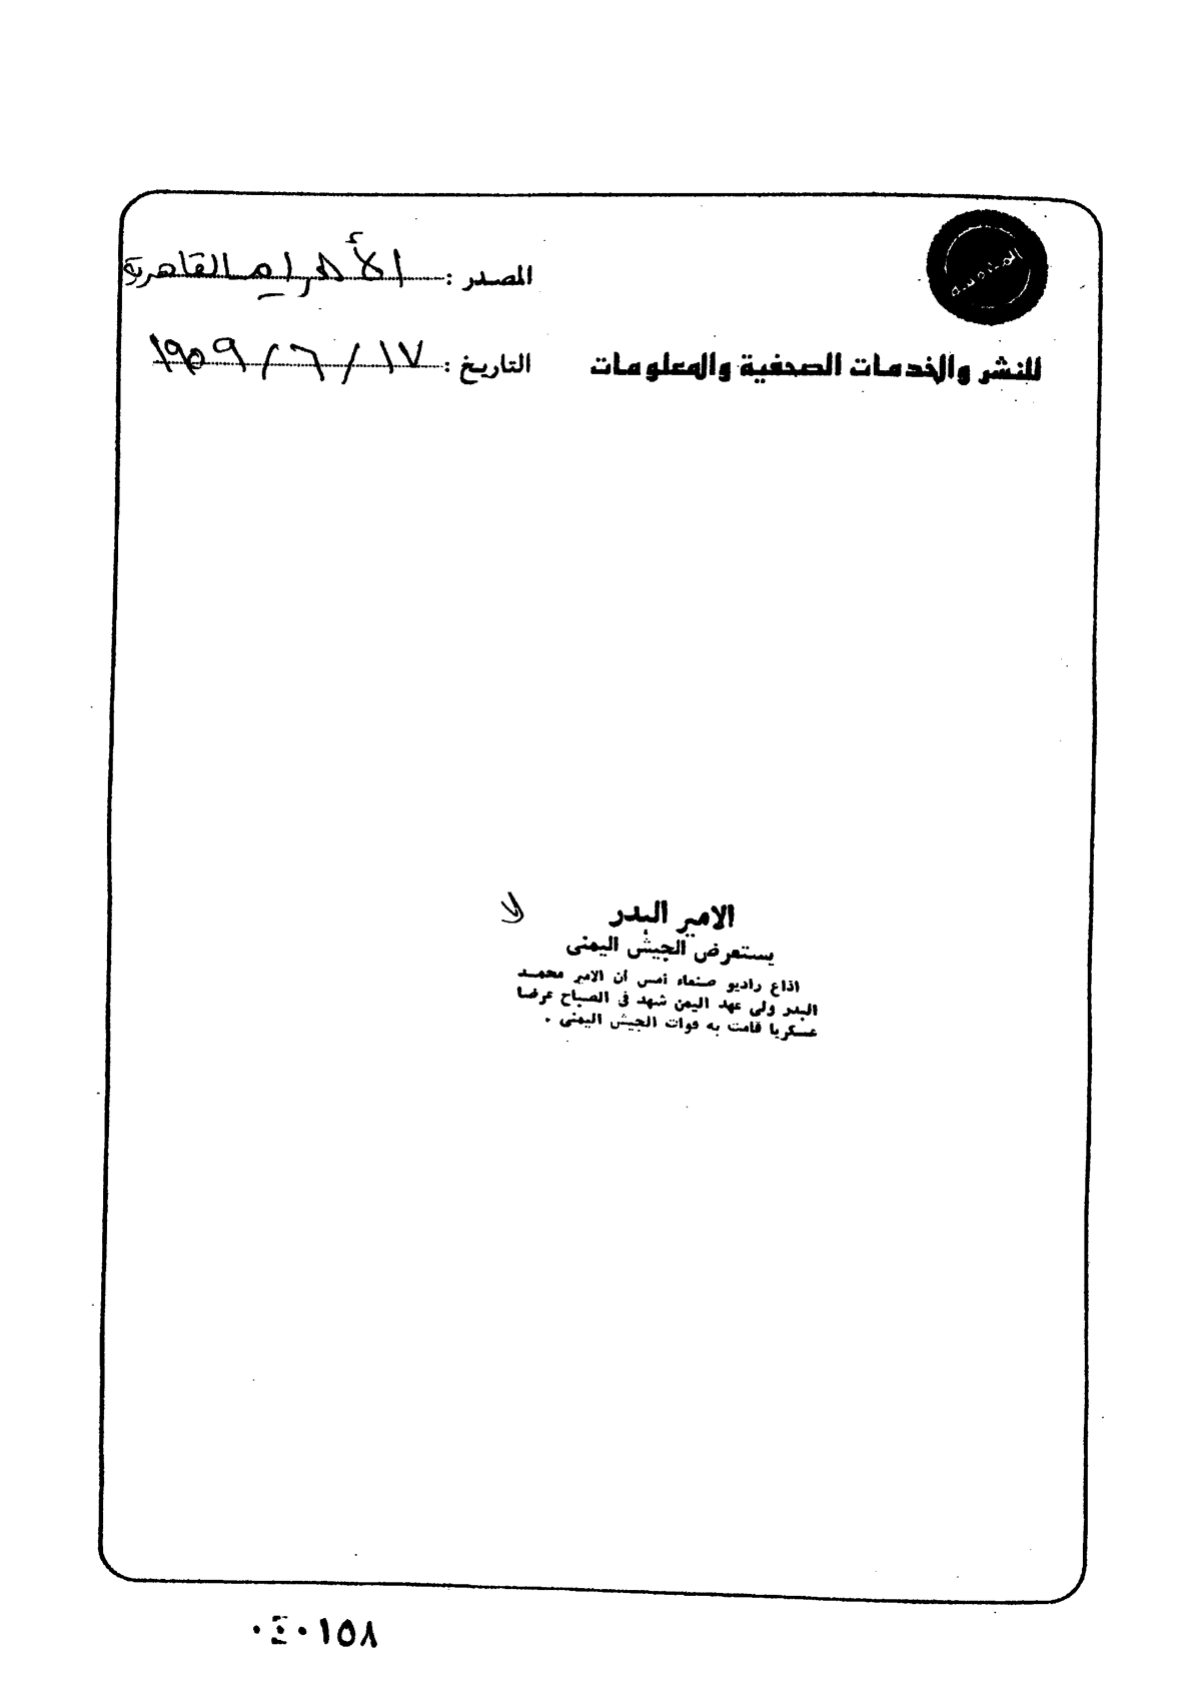 المصدر : الأهرام القاهرية
للنشر والخدمات الصحفية والمعلومات
التاريخ : ١٧ / ٦ / ١٩٥٩
لا
الامير البدر
يستعرض الجيش اليمنى
اذاع راديو صنعاء أمس أن الامير محمد
البدر ولى عهد اليمن شهد فى الصباح عرضا
عسكريا قامت به قوات الجيش اليمنى .
١٥٨